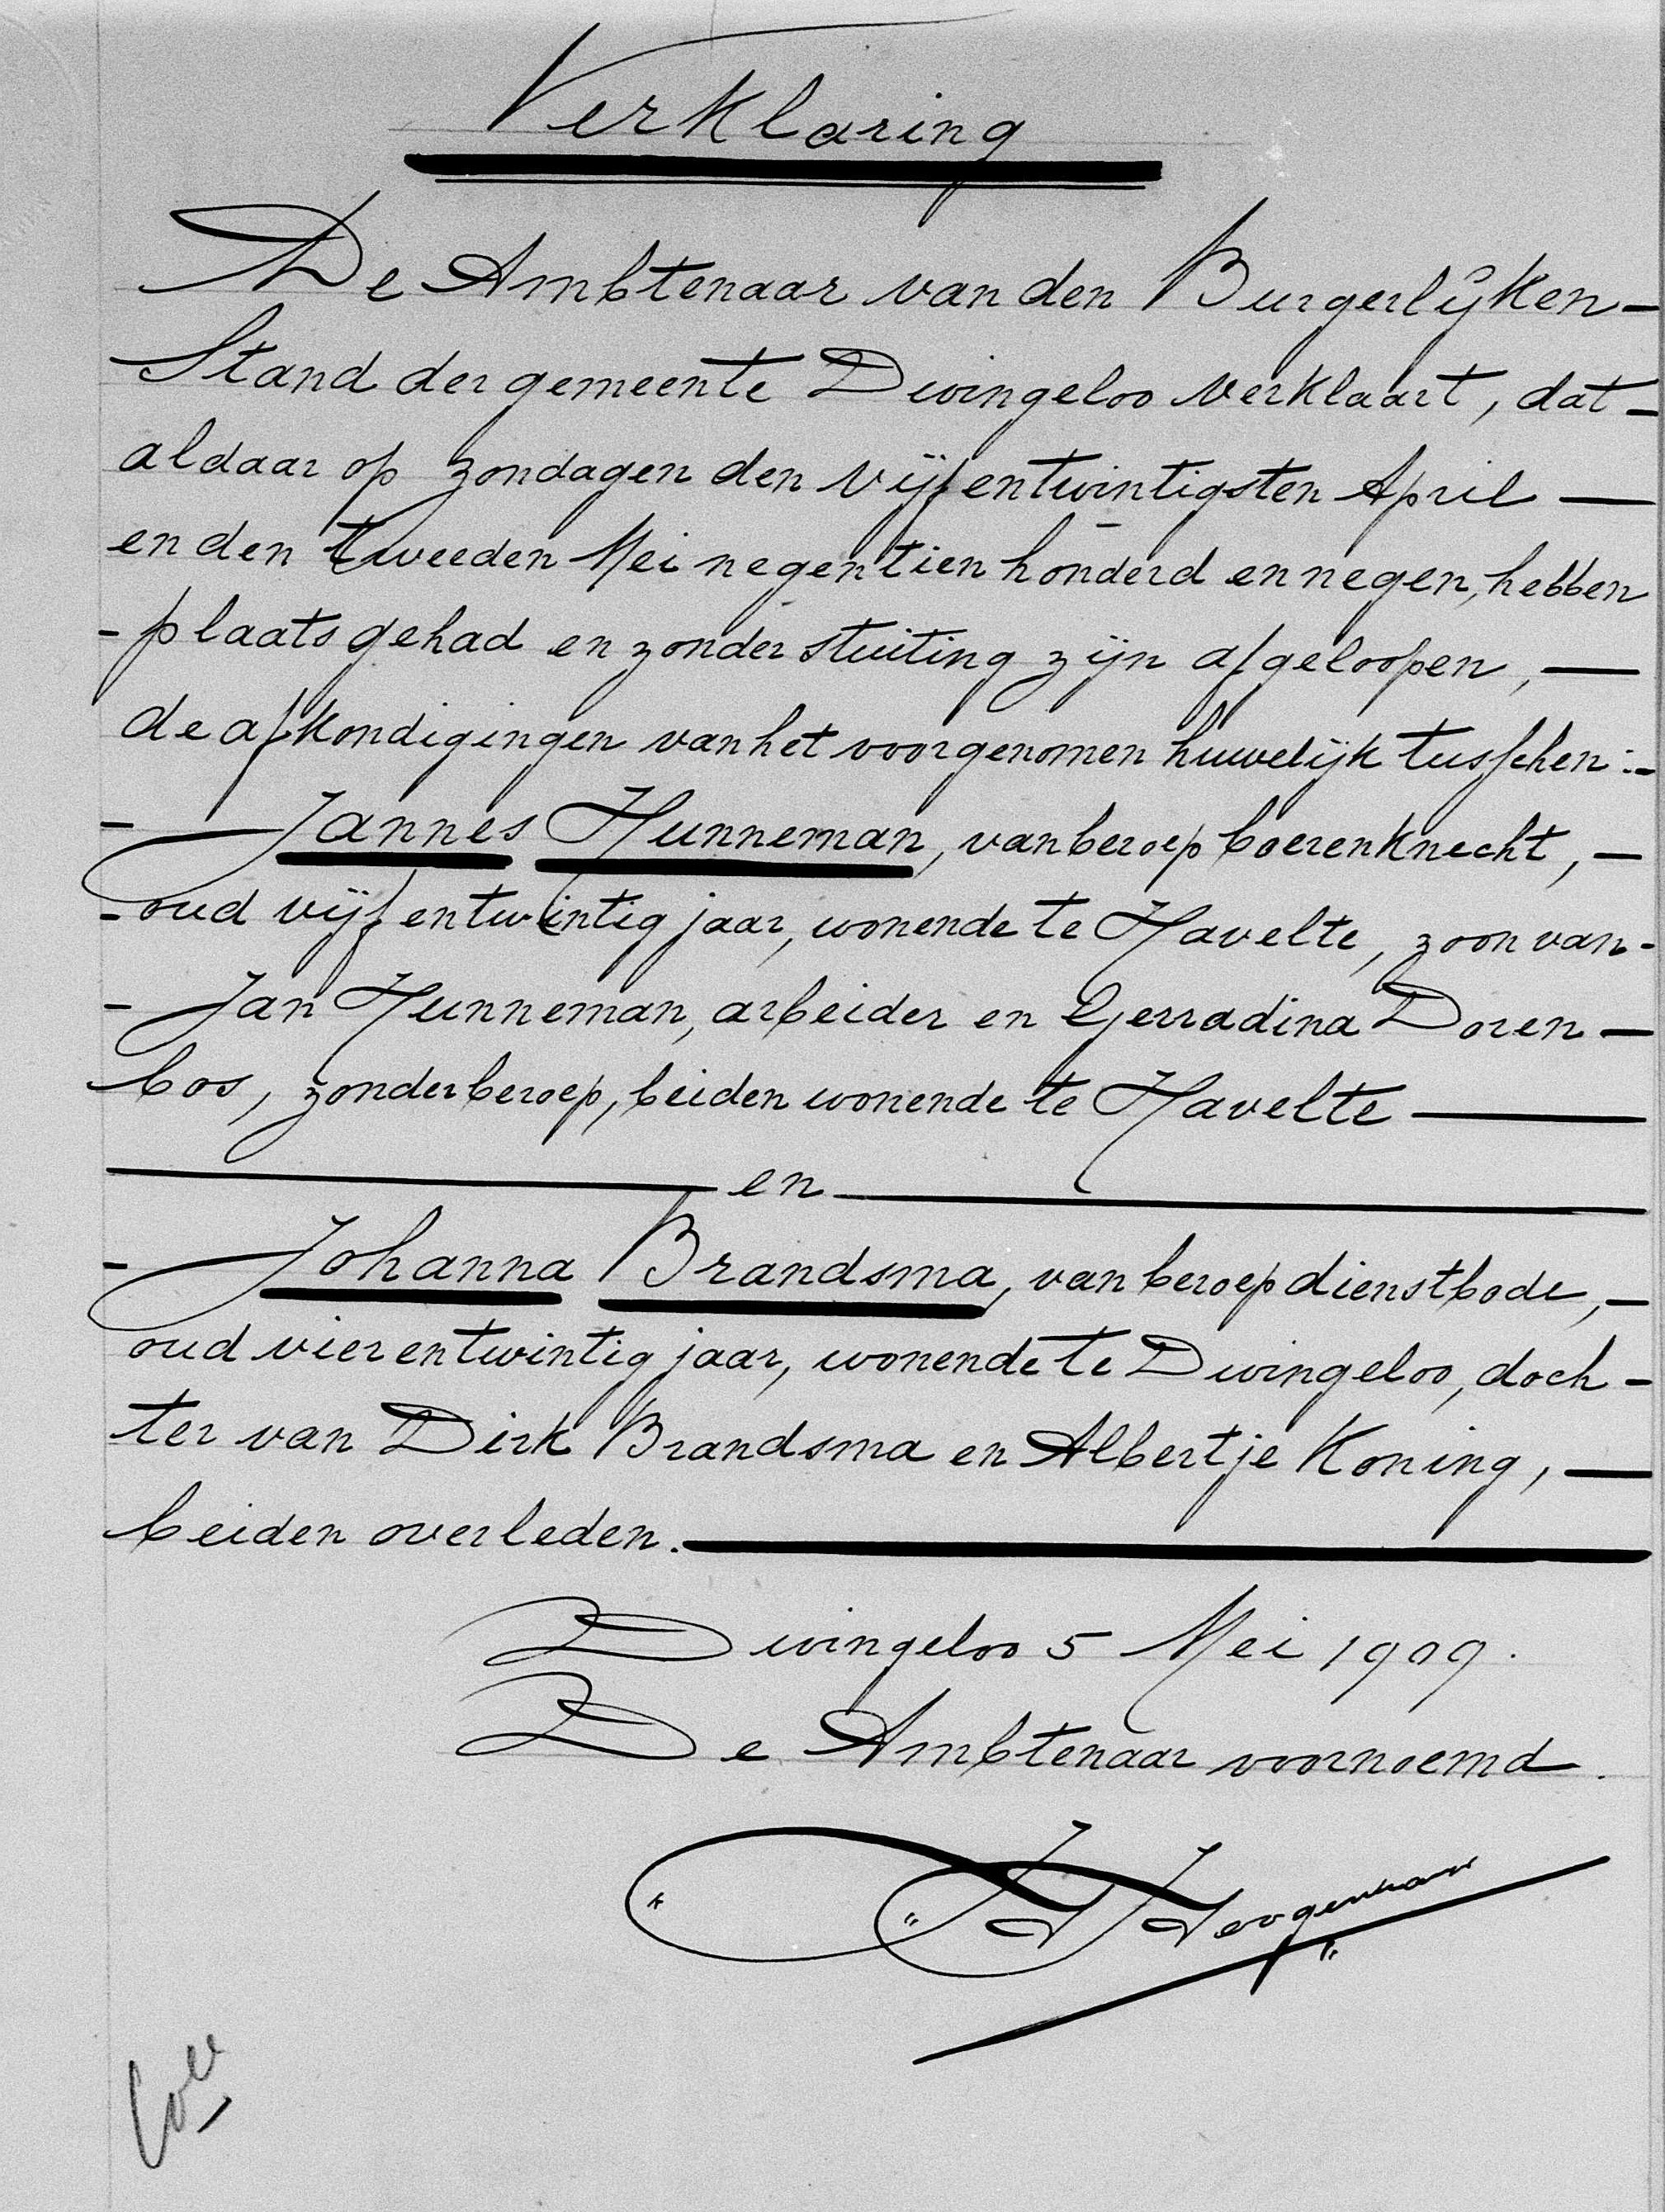 Verklaring
De Ambtenaar van den Burgerlijken-
Stand der gemeente Dwingeloo verklaart, dat-
aldaar op zondagen den vijfentwintigsten April —
en den tweeden Mei negentienhonderd en negen, hebben
- plaats gehad en zonder stuiting zijn afgeloopen, —
de afkondigingen van het voorgenomen huwelijk tusschen :-
- Jannes Hunneman, van beroep boerenknecht, —
- oud vijfentwintig jaar, wonende te Havelte, zoon van -
- Jan Hunneman, arbeider en Gerradina Doren —
bos, zonder beroep, beiden wonende te Havelte —
— en —
- Johanna Brandsma, van beroep dienstbode, —
oud vierentwintig jaar, wonende te Dwingeloo, doch -
ter van Dirk Brandsma en Albertje Koning, —
beiden overleden. —
Dwingeloo 5 Mei 1909.
De Ambtenaar voornoemd.